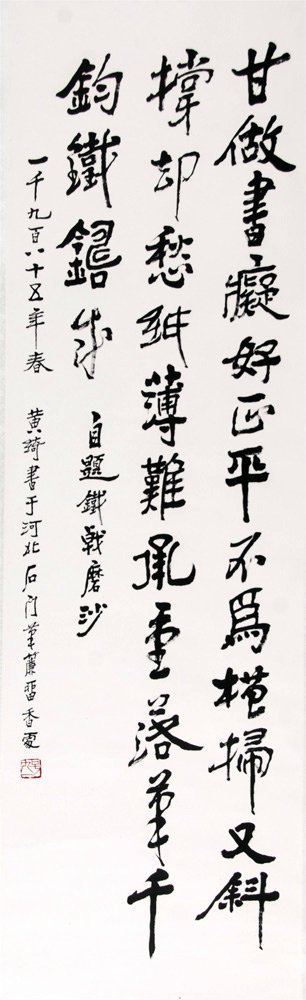 甘做書癡好正平不爲橫掃又斜
撐却愁紙薄難承重落筆千
鈞鐵鑄成 自題鐵戟磨沙
一千九百八十五年春 黃綺書于河北石门筆簾留香處